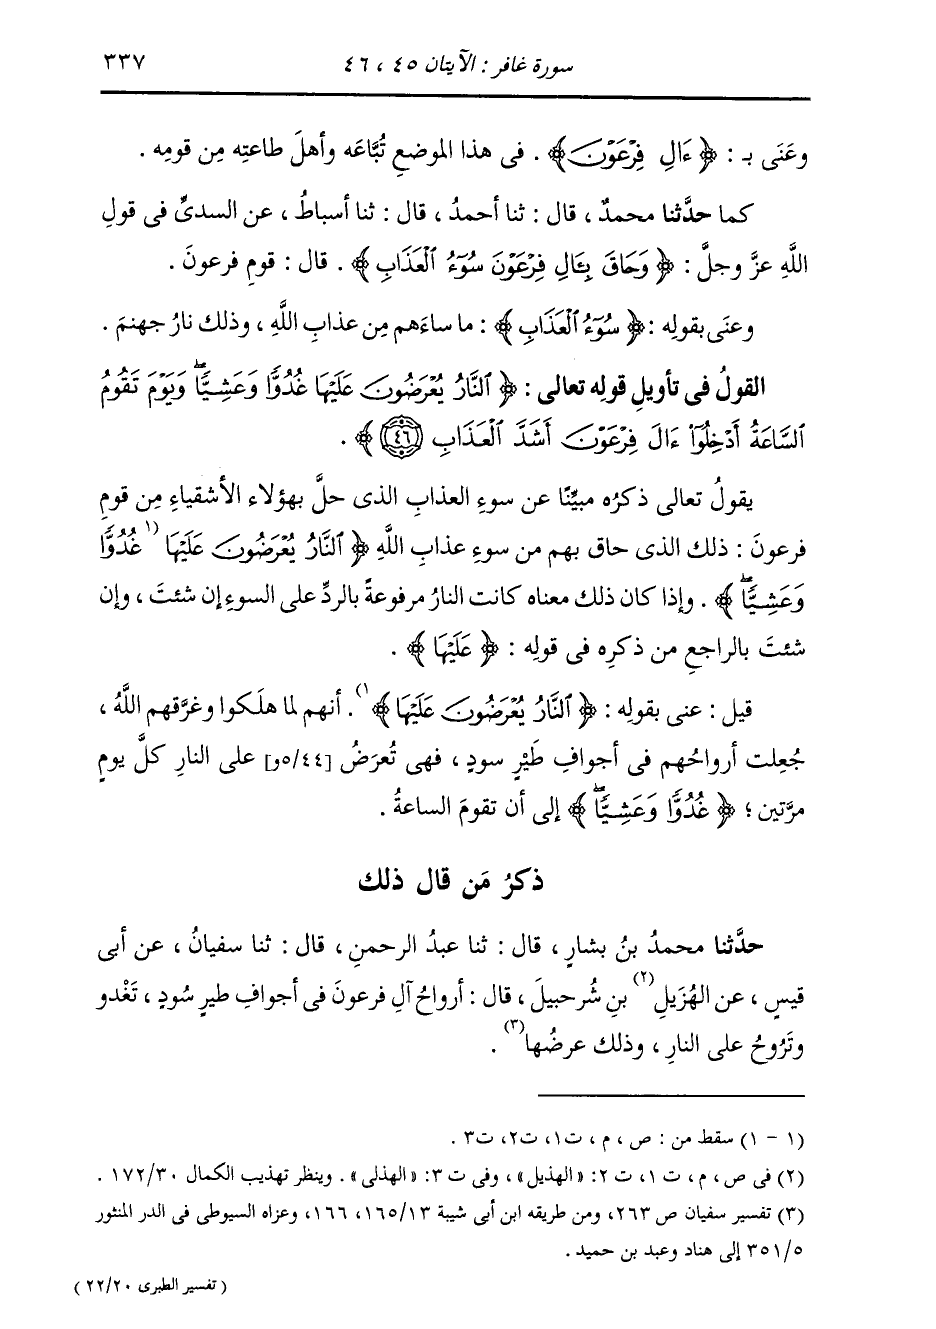 سورة غافر : الآيتان ٤٥ ، ٤٦ ٣٣٧
وعَنَى بـ : ﴿ ءَالِ فِرْعَوْنَ ﴾ . فى هذا الموضعِ تُبَّاعَه وأهلَ طاعتِه مِن قومِه .
كما حدَّثنا محمدٌ ، قال : ثنا أحمدُ ، قال : ثنا أسباطُ ، عن السدىِّ فى قولِ
اللَّهِ عزَّ وجلَّ : ﴿ وَحَاقَ بِـَٔالِ فِرْعَوْنَ سُوٓءُ ٱلْعَذَابِ ﴾ . قال : قومِ فرعونَ .
وعنَى بقولِه : ﴿ سُوٓءُ ٱلْعَذَابِ ﴾ : ما ساءَهم مِن عذابِ اللَّهِ ، وذلك نارُ جهنمَ .
القولُ فى تأويلِ قولِه تعالى : ﴿ ٱلنَّارُ يُعْرَضُونَ عَلَيْهَا غُدُوًّا وَعَشِيًّا ۖ وَيَوْمَ تَقُومُ
ٱلسَّاعَةُ أَدْخِلُوٓا۟ ءَالَ فِرْعَوْنَ أَشَدَّ ٱلْعَذَابِ (٤٦) ﴾ .
يقولُ تعالى ذكرُه مبيِّنًا عن سوءِ العذابِ الذى حلَّ بهؤلاء الأشقياءِ مِن قومِ
فرعونَ : ذلك الذى حاق بهم من سوءِ عذابِ اللَّهِ ﴿ ٱلنَّارُ يُعْرَضُونَ عَلَيْهَا (١ غُدُوًّا
وَعَشِيًّا ۖ ﴾ . وإذا كان ذلك معناه كانت النارُ مرفوعةً بالردِّ على السوءِ إن شئتَ ، وإن
شئتَ بالراجعِ من ذكرِه فى قولِه : ﴿ عَلَيْهَا ﴾ .
قيل : عنى بقولِه : ﴿ ٱلنَّارُ يُعْرَضُونَ عَلَيْهَا ﴾ ١) . أنهم لما هلَكوا وغرَّقهم اللَّهُ ،
جُعِلت أرواحُهم فى أجوافِ طَيْرٍ سودٍ ، فهى تُعرَضُ [٥/٤٤و] على النارِ كلَّ يومٍ
مرَّتين ؛ ﴿ غُدُوًّا وَعَشِيًّا ۖ ﴾ إلى أن تقومَ الساعةُ .
ذكرُ مَن قال ذلك
حدَّثنا محمدُ بنُ بشارٍ ، قال : ثنا عبدُ الرحمنِ ، قال : ثنا سفيانُ ، عن أبى
قيسٍ ، عن الهُزَيلِ (٢) بنِ شُرحبيلَ ، قال : أرواحُ آلِ فرعونَ فى أجوافِ طيرٍ سُودٍ ، تَغْدو
وتَرُوحُ على النارِ ، وذلك عرضُها (٣) .
(١ - ١) سقط من : ص ، م ، ت١ ، ت٢ ، ت٣ .
(٢) فى ص ، م ، ت ١ ، ت ٢ : «الهذيل» ، وفى ت ٣ : «الهذلى» . وينظر تهذيب الكمال ١٧٢/٣٠ .
(٣) تفسير سفيان ص ٢٦٣ ، ومن طريقه ابن أبى شيبة ١٦٥/١٣ ، ١٦٦ ، وعزاه السيوطى فى الدر المنثور
٣٥١/٥ إلى هناد وعبد بن حميد .
( تفسير الطبرى ٢٢/٢٠ )